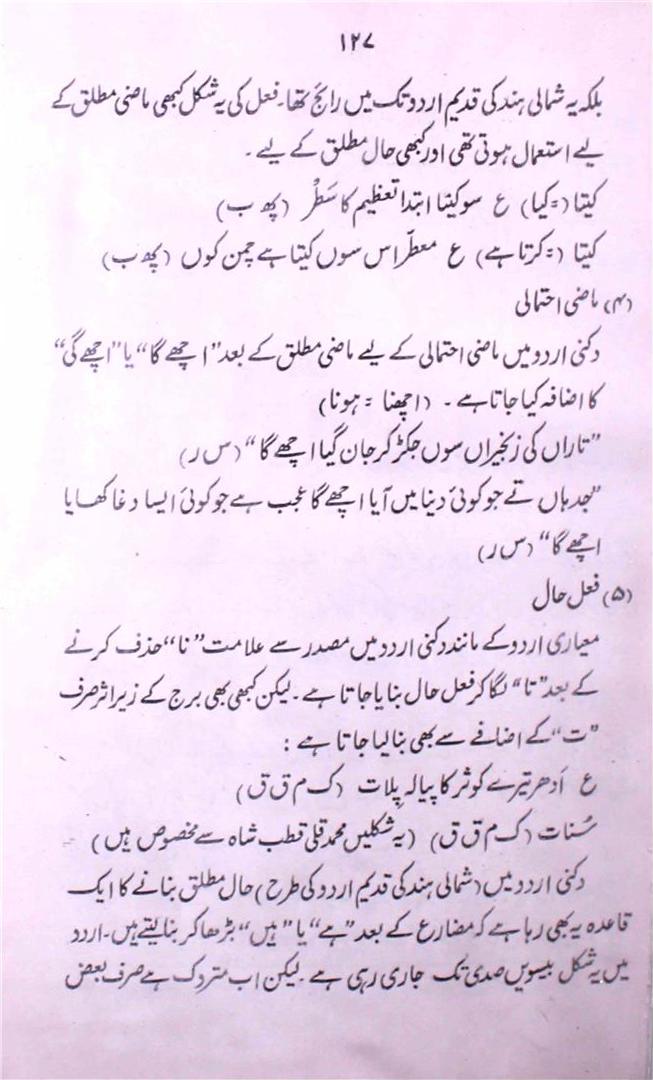 ۱۲۷
بلکہ یہ شمالی ہند کی قدیم اردو تک میں رائج تھا۔ فعل کی یہ شکل کبھی ماضی مطلق کے
لیے استعمال ہوتی تھی اور کبھی حال مطلق کے لیے۔
کیتا (= کیا) ع سو کیتا ابتدا تعظیم کا سَطْر (پھ ب)
کیتا (= کرتا ہے) ع معطّر اس سوں کیتا ہے چمن کوں (پھ ب)
(۴) ماضی احتمالی
دکنی اردو میں ماضی احتمالی کے لیے ماضی مطلق کے بعد "اچھے گا" یا "اچھے گی"
کا اضافہ کیا جاتا ہے۔ (اچھنا = ہونا)
"تاراں کی زنجیراں سوں جکڑ کر جان گیا اچھے گا" (س ر)
"جدہاں تے جو کوئی دنیا میں آیا اچھے گا عجب ہے جو کوئی ایسا دغا کھایا
اچھے گا" (س ر)
(۵) فعل حال
معیاری اردو کے مانند دکنی اردو میں مصدر سے علامت "نا" حذف کرنے
کے بعد "تا" لگا کر فعل حال بنایا جاتا ہے۔ لیکن کبھی بھی برج کے زیر اثر صرف
"ت" کے اضافے سے بھی بنا لیا جاتا ہے:
ع اَدھر تیرے کوثر کا پیالہ پِلات (ک م ق ق)
سُنات (ک م ق ق) (یہ شکلیں محمد قلی قطب شاہ سے مخصوص ہیں)
دکنی اردو میں (شمالی ہند کی قدیم اردو کی طرح) حال مطلق بنانے کا ایک
قاعدہ یہ بھی رہا ہے کہ مضارع کے بعد "ہے" یا "ہیں" بڑھا کر بنا لیتے ہیں۔ اردو
میں یہ شکل بیسویں صدی تک جاری رہی ہے۔ لیکن اب متروک ہے صرف بعض